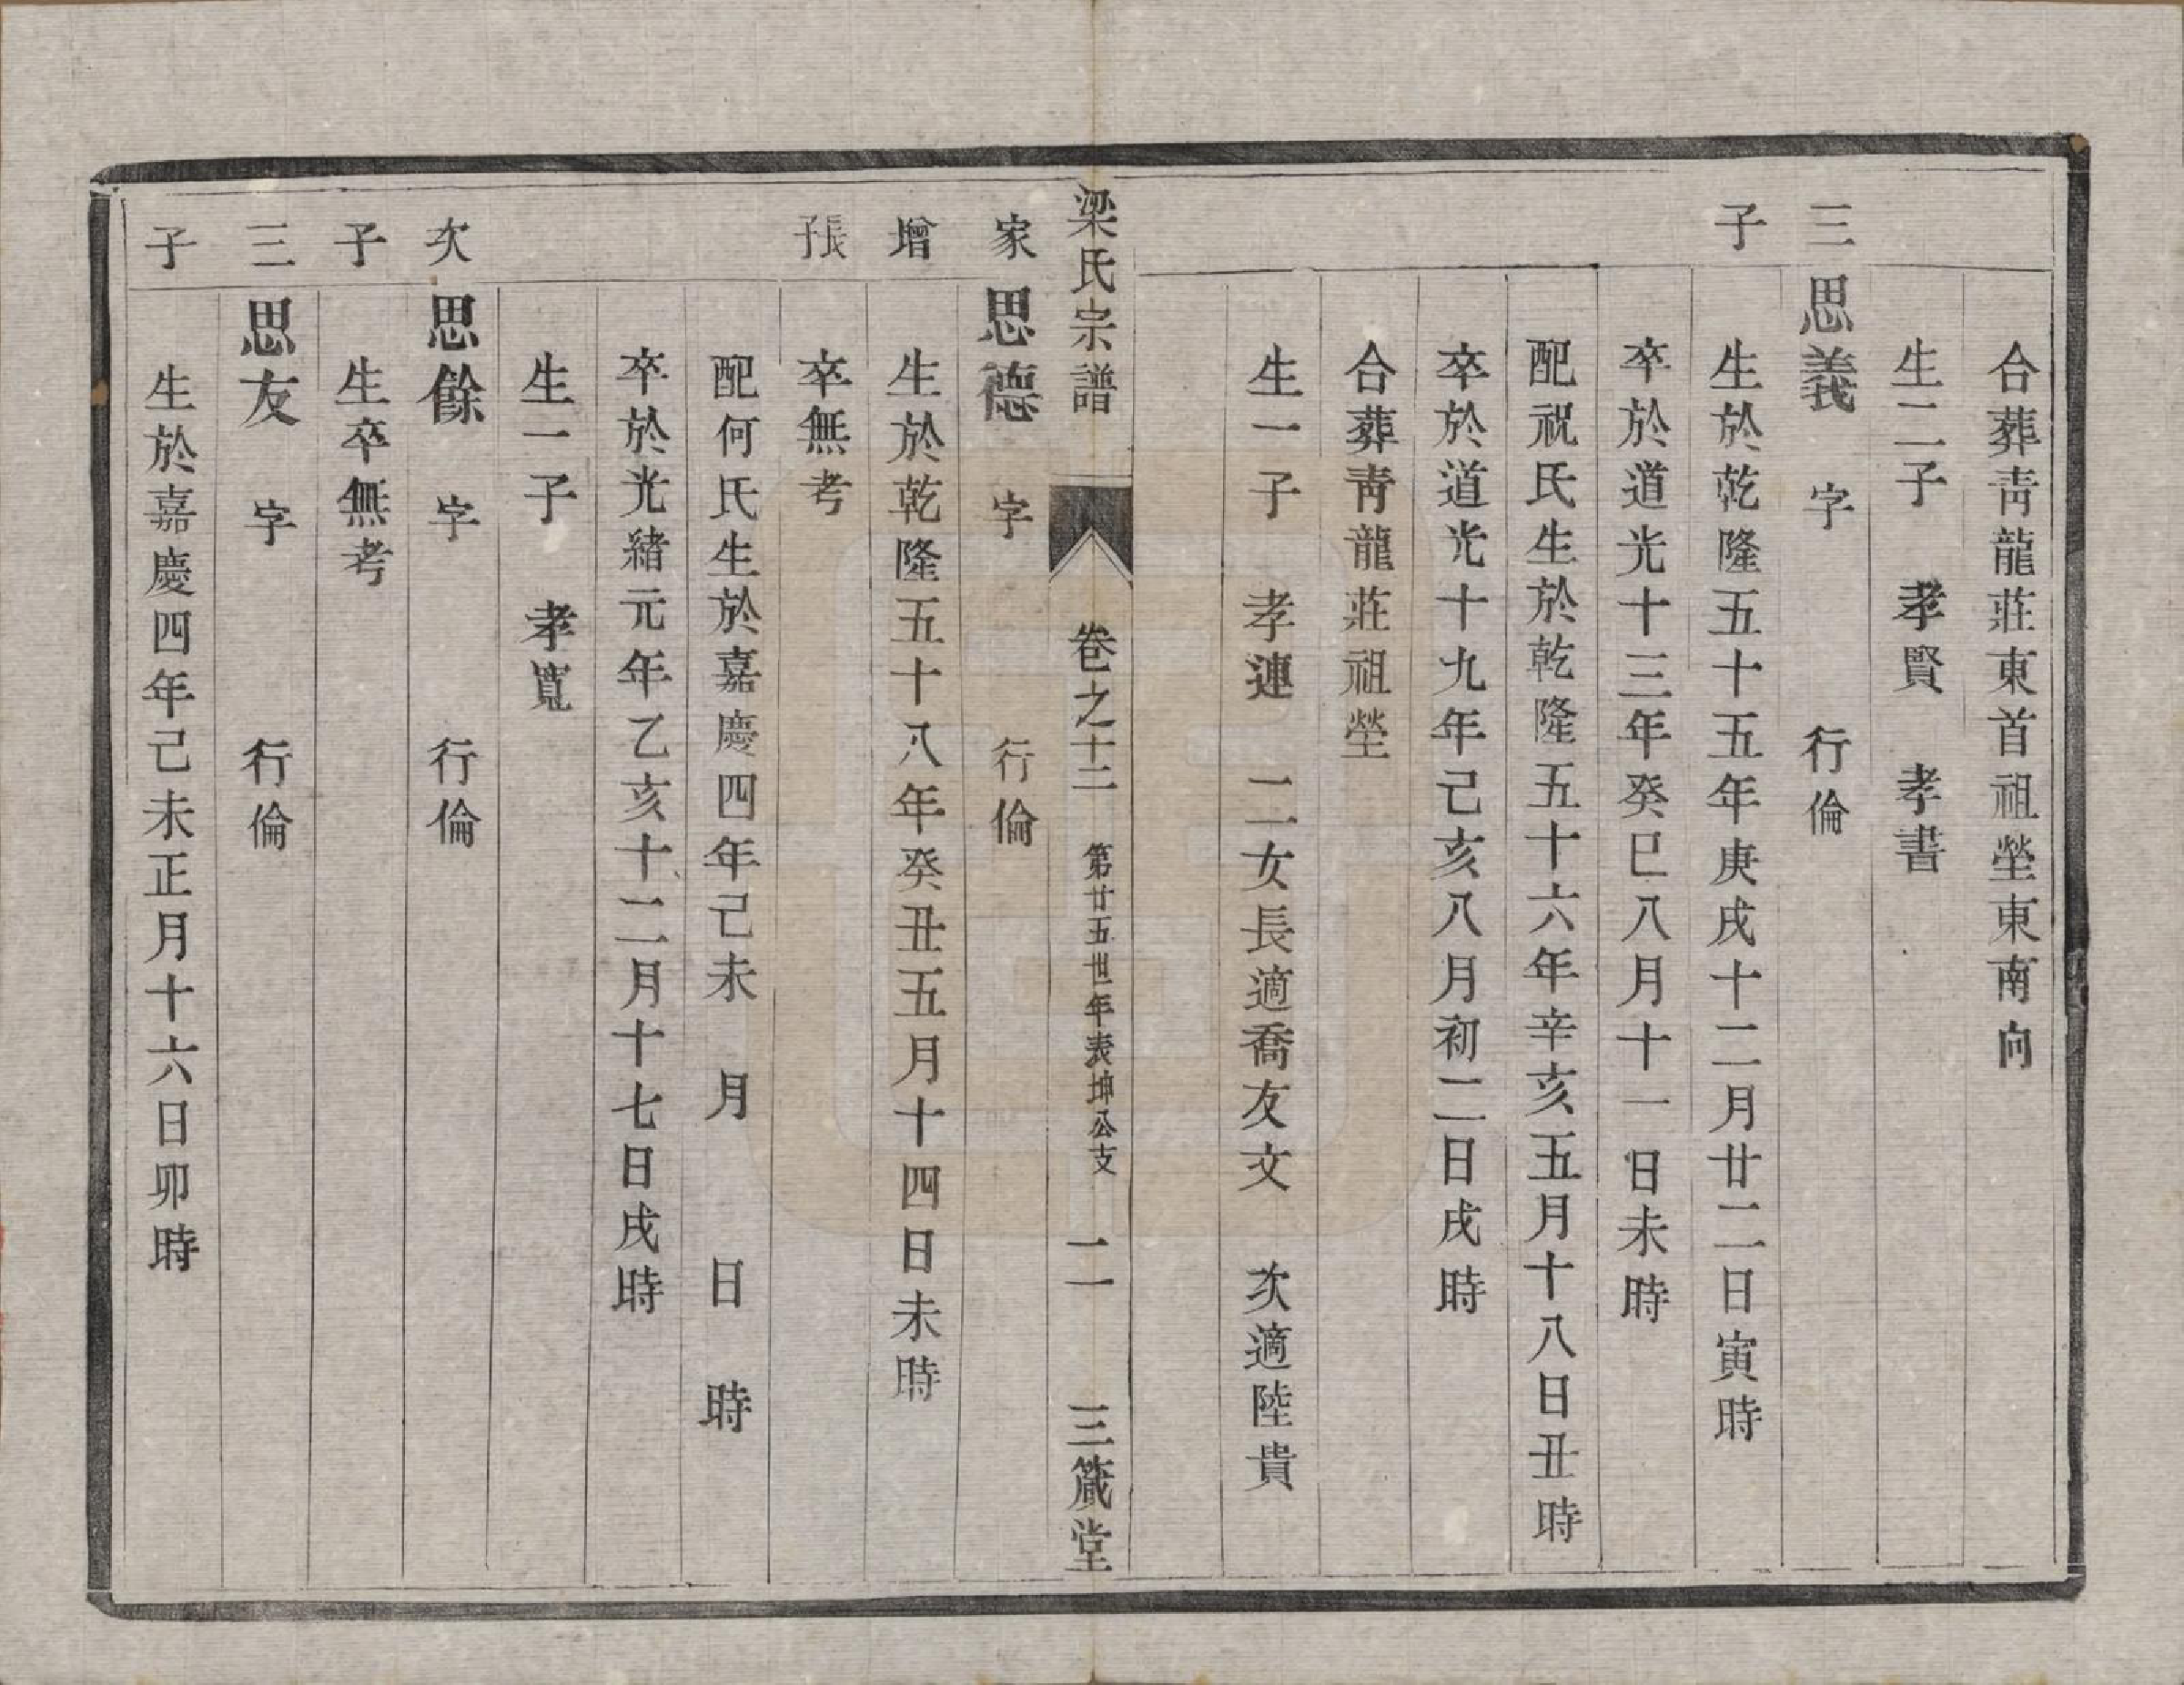 合葬靑龍莊東首祖塋東南向
生二子 孝賢 孝書
三 思義 字 行倫
子 生於乾隆五十五年庚戌十二月廿二日寅時
卒於道光十三年癸巳八月十一日未時
配祝氏生於乾隆五十六年辛亥五月十八日丑時
卒於道光十九年己亥八月初二日戌時
合葬靑龍莊祖塋
生一子 孝連 二女長適喬友文 次適陸貴
梁氏宗譜 卷之十二 第廿五世年表坤公支 二 三箴堂
家 思德 字 行倫
增 生於乾隆五十八年癸丑五月十四日未時
張子 卒無考
配何氏生於嘉慶四年己未 月 日 時
卒於光緒元年乙亥十二月十七日戌時
生一子 孝寬
次 思餘 字 行倫
子 生卒無考
三 思友 字 行倫
子 生於嘉慶四年己未正月十六日卯時